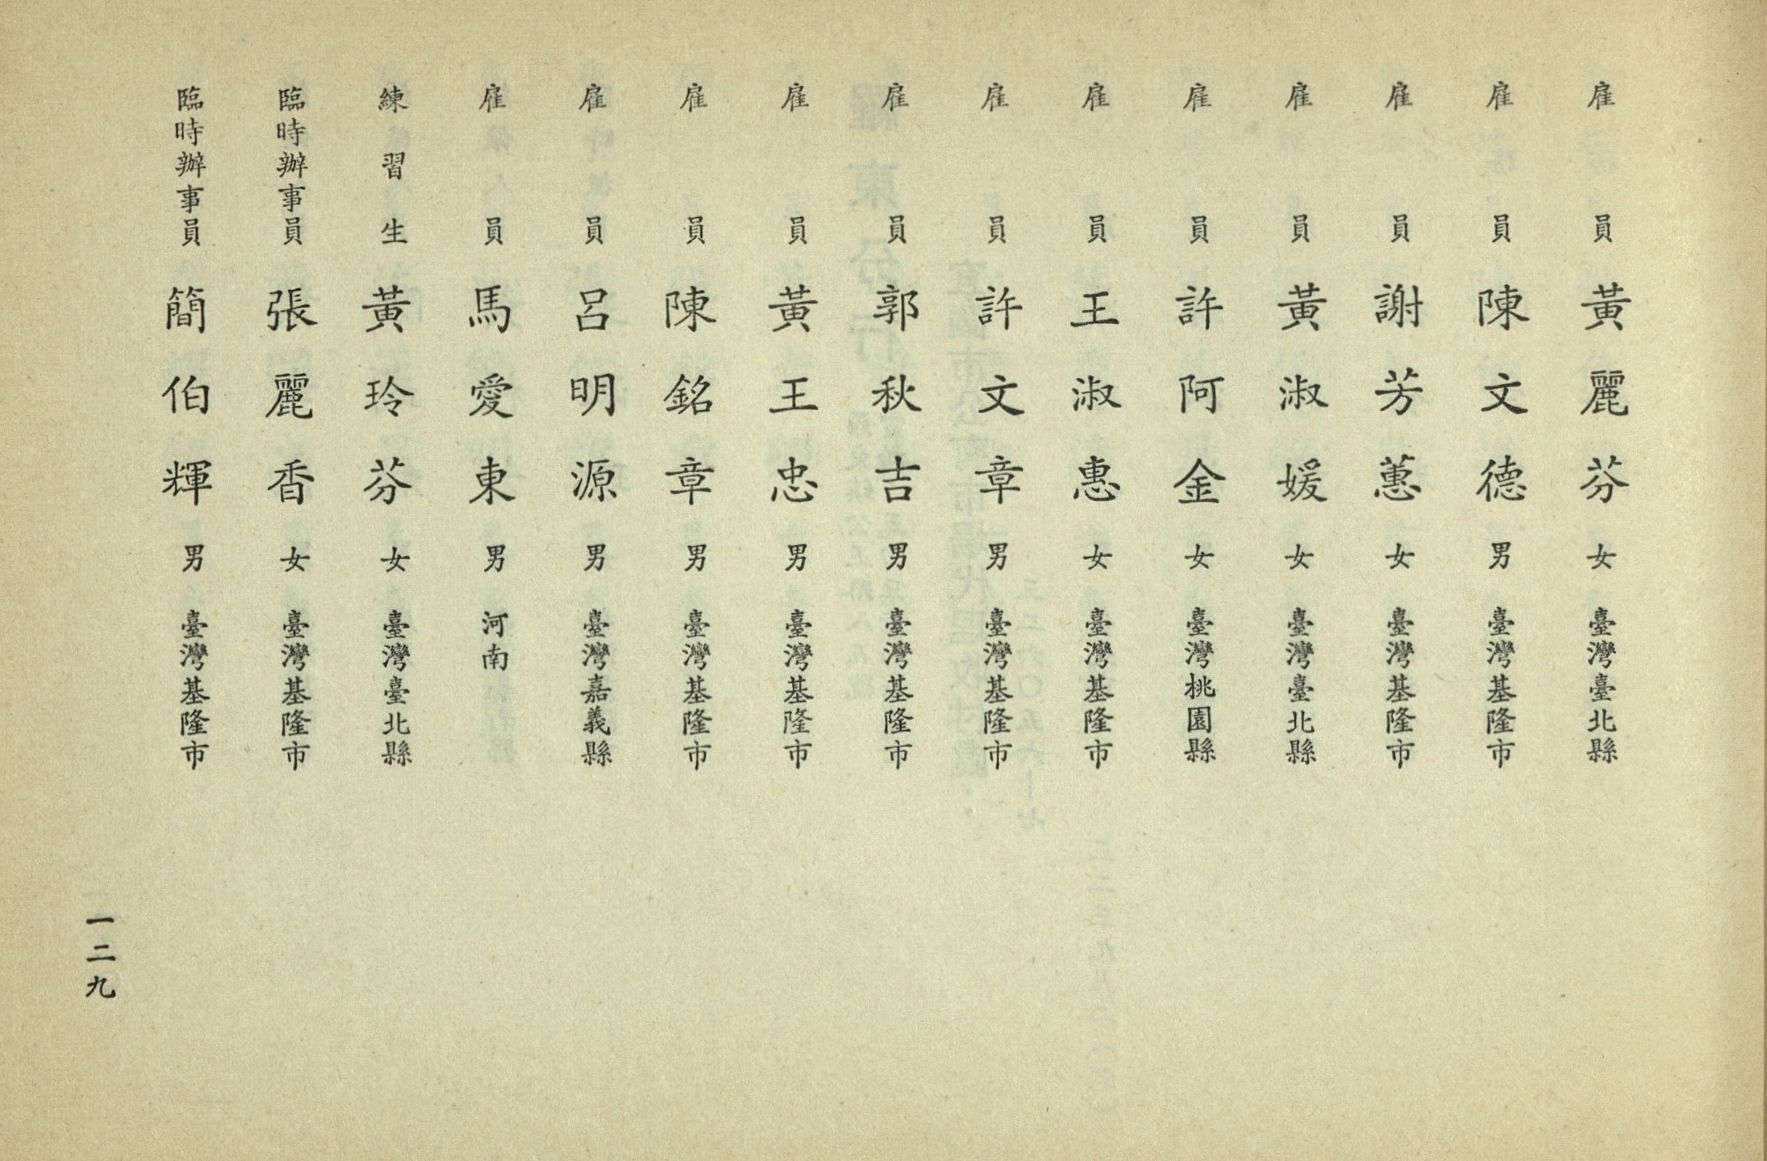 雇員 黃麗芬 女 臺灣臺北縣
雇員 陳文德 男 臺灣基隆市
雇員 謝芳蕙 女 臺灣基隆市
雇員 黃淑媛 女 臺灣臺北縣
雇員 許阿金 女 臺灣桃園縣
雇員 王淑惠 女 臺灣基隆市
雇員 許文章 男 臺灣基隆市
雇員 郭秋吉 男 臺灣基隆市
雇員 黃王忠 男 臺灣基隆市
雇員 陳銘章 男 臺灣基隆市
雇員 呂明源 男 臺灣嘉義縣
雇員 馬愛東 男 河南
練習生 黃玲芬 女 臺灣臺北縣
臨時辦事員 張麗香 女 臺灣基隆市
臨時辦事員 簡伯輝 男 臺灣基隆市
一二九